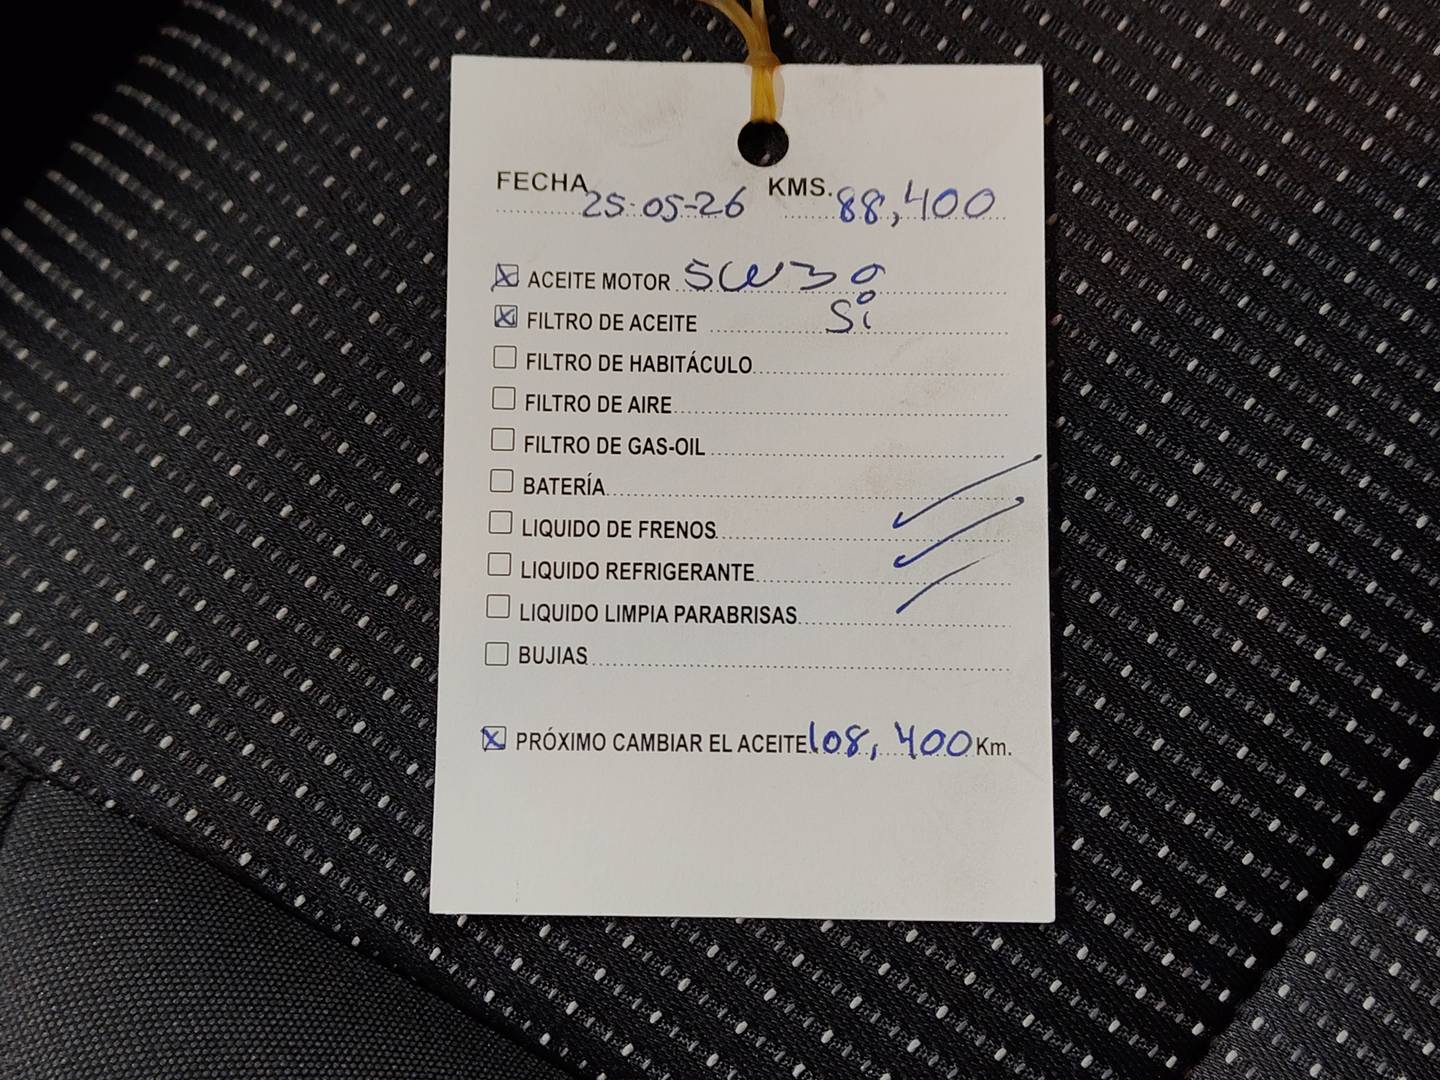 FECHA 25-05-26 KMS. 88,400
ACEITE MOTOR 5W30
FILTRO DE ACEITE Si
FILTRO DE HABITÁCULO
FILTRO DE AIRE
FILTRO DE GAS-OIL
BATERÍA
LIQUIDO DE FRENOS
LIQUIDO REFRIGERANTE
LIQUIDO LIMPIA PARABRISAS
BUJIAS
PRÓXIMO CAMBIAR EL ACEITE 108,400 Km.